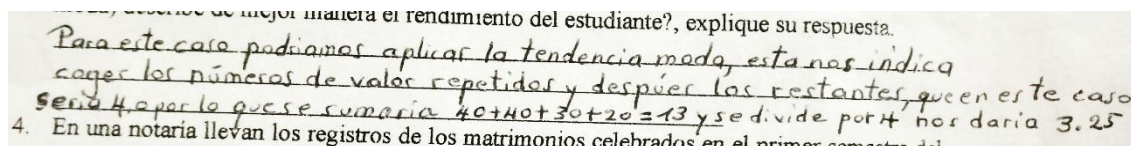 moda, describe de mejor manera el rendimiento del estudiante?, explique su respuesta.
Para este caso podriamos aplicar la tendencia moda, esta nos indica
coger los números de valor repetidos y despúes los restantes, que en este caso
seria 4, por lo que se sumaria 40+40+30+20=13 y se divide por 4 nos daria 3.25
4. En una notaría llevan los registros de los matrimonios celebrados en el primer